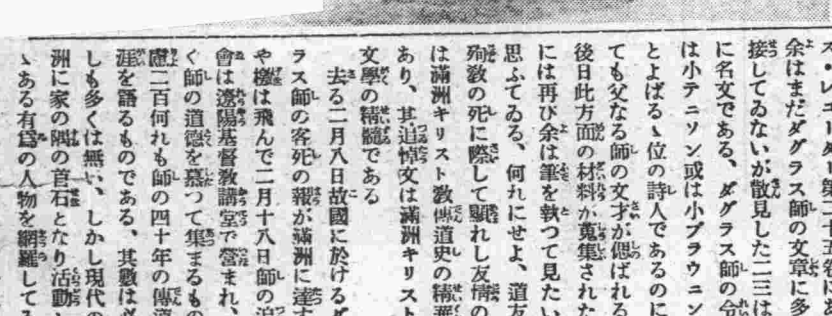 ス・レコード第二十五卷に
余はまだダグラス師の文章に多
接してゐないが散見した二三は
に名文である、ダグラス師の令
は小テニソン或は小ブラウニン
とよばるゝ位の詩人であるのに
ても父なる師の文才が偲ばれる
後日此方面の材料が蒐集された
には再び余は筆を執つて見たい
思ふてゐる、何れにせよ、道友
殉敎の死に際して顯れし友情の
は滿洲キリスト敎傳道史の精華
あり、其追悼文は滿洲キリスト
文學の精髓である
去る二月八日故國に於けるダ
ラス師の客死の報が滿洲に達す
や檄は飛んで二月十八日師の追
會は遼陽基督敎講堂で營まれ、
く師の道德を慕つて集まるもの
慮二百何れも師の四十年の傳道
涯を語るものである、其數は必
しも多くは無い、しかし現代の
洲に家の隅の首石となり活動し
ゝある有爲の人物を網羅して